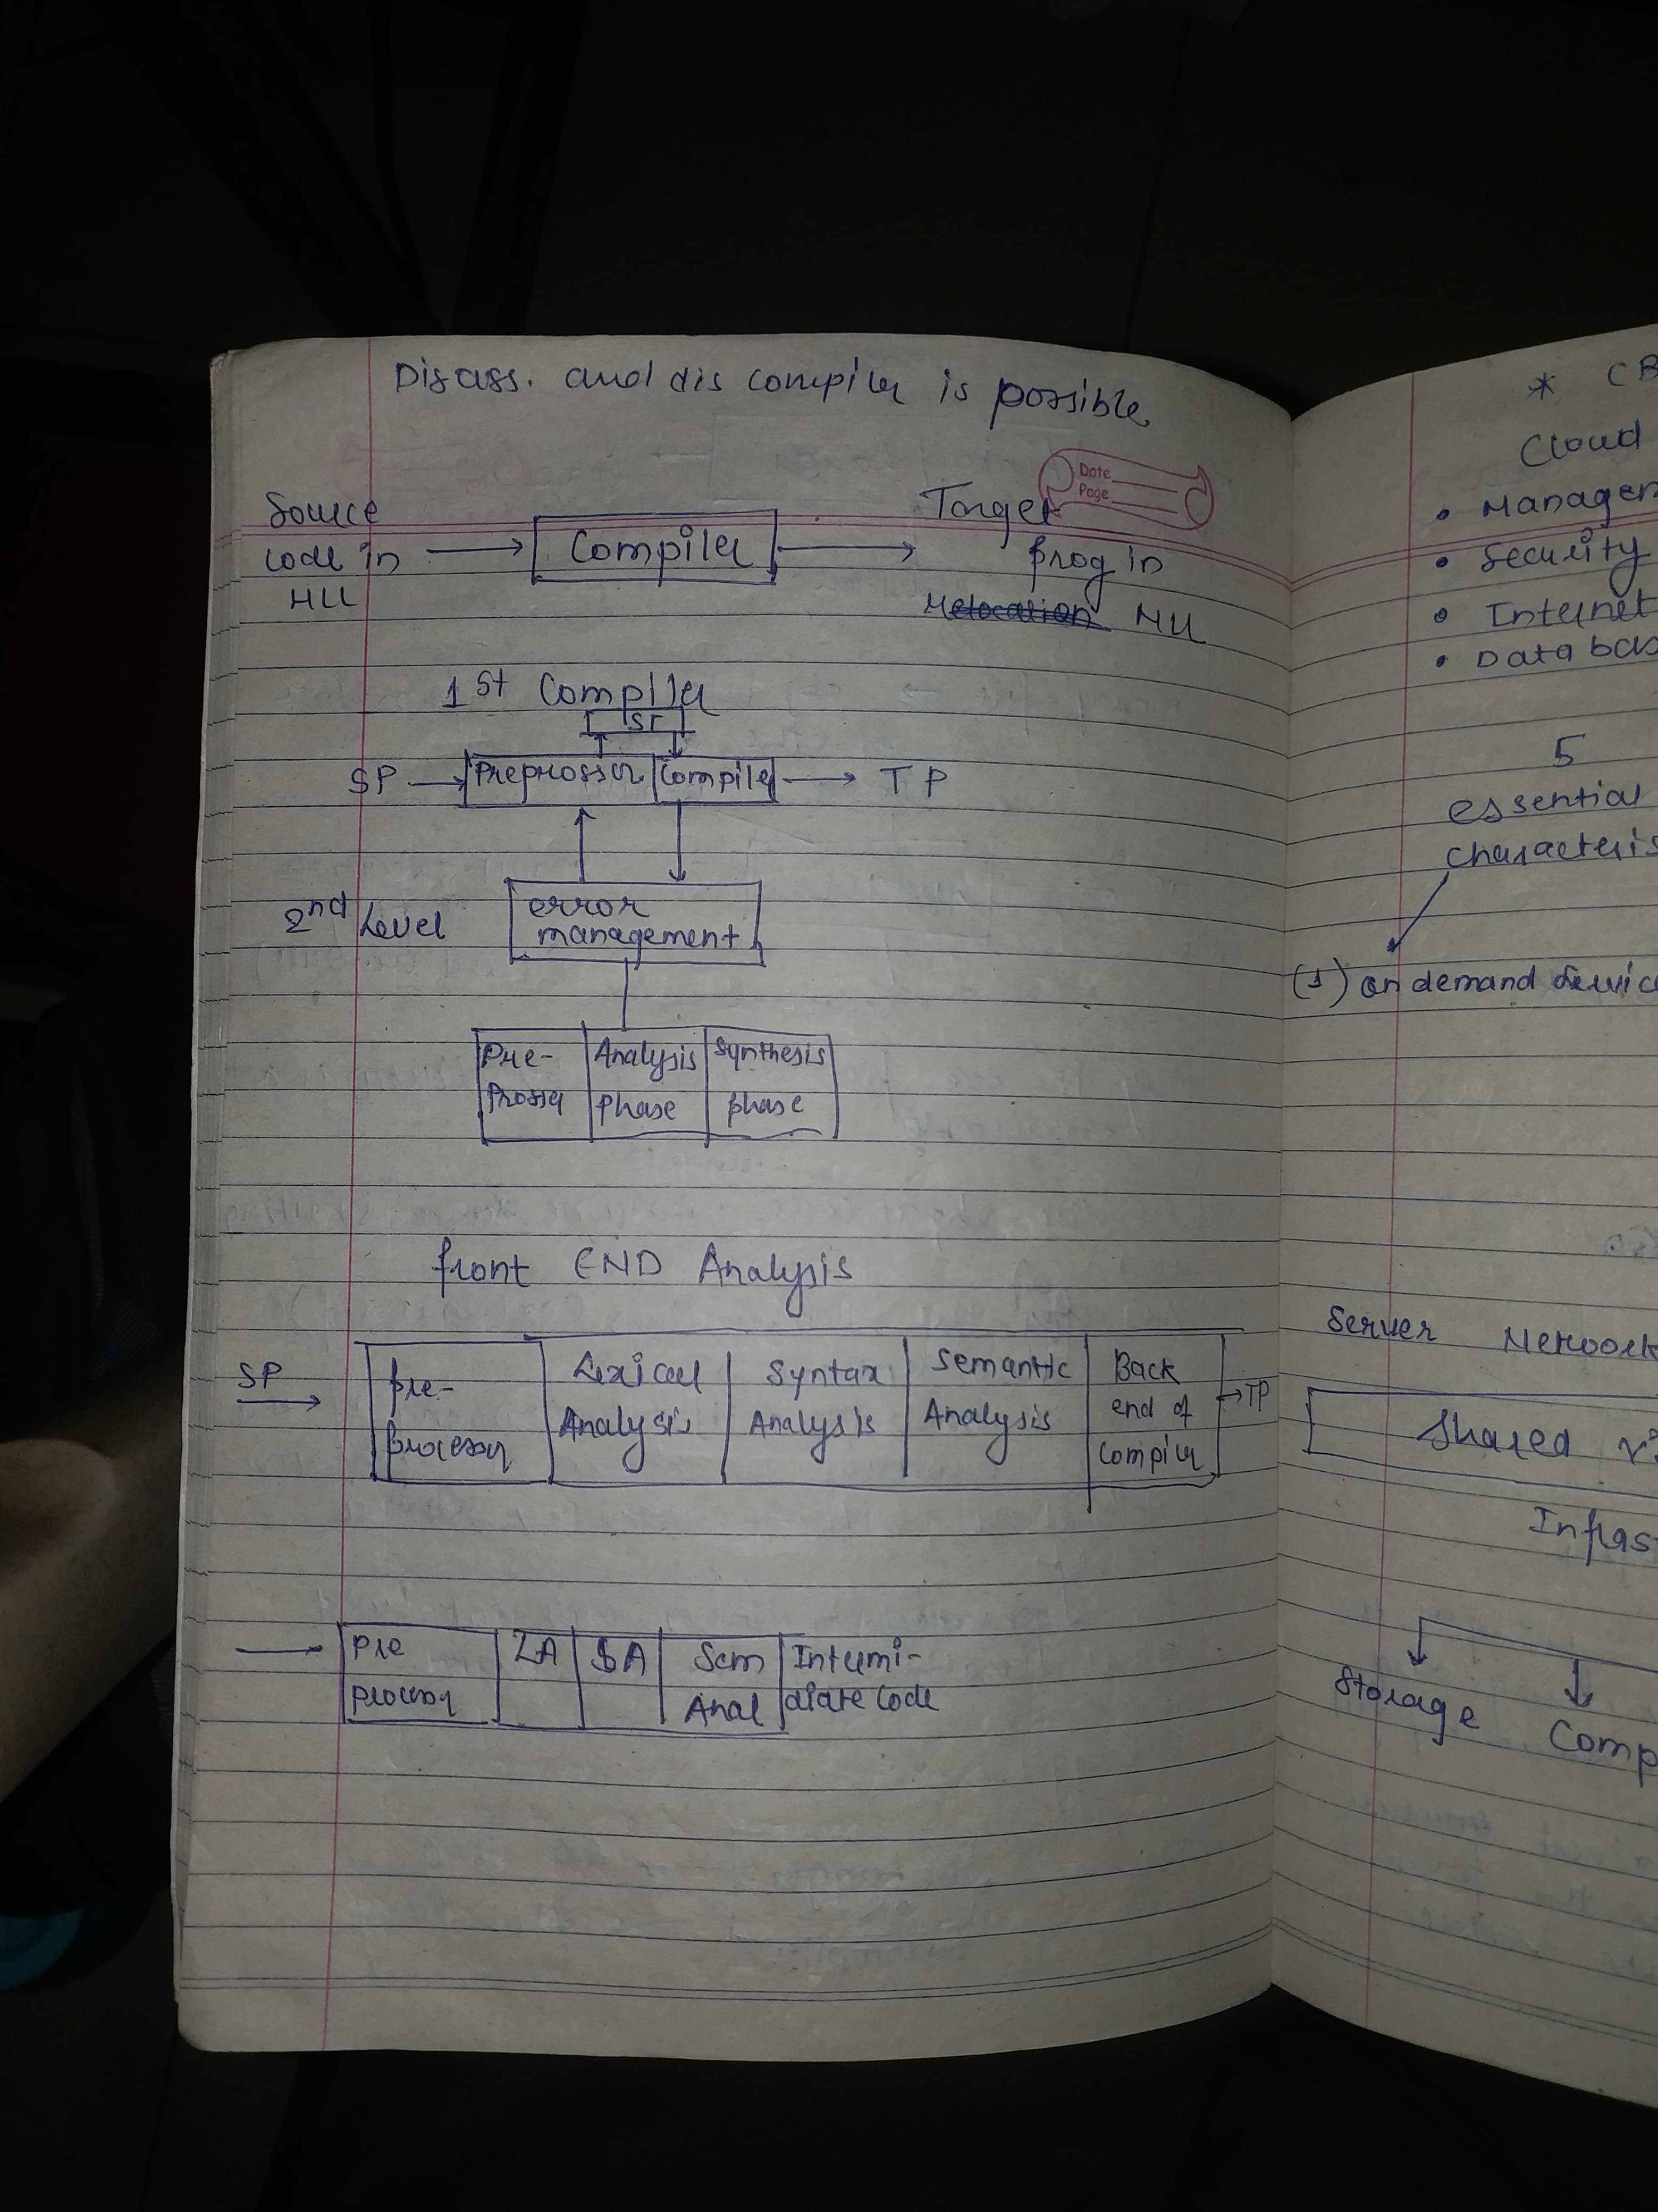 Disass. and dis compiler is possible
Date
Page
Source
code in
HLL
Compiler
Target
prog in
MLL
1st Compiler
ST
SP
Preprossor
Compiler
TP
2nd Level
error
management
Pre-
Prosser
Analysis
phase
Synthesis
phase
front END Analysis
SP
Pre-
processor
Lexical
Analysis
Syntax
Analysis
Semantic
Analysis
Back
end of
Compiler
TP
Pre
processor
LA
SA
Sem
Anal
Intermi-
diate Code
* CB
Cloud
• Managem
• Security
• Internet
• Data bas
5
essential
characteris
(1) on demand Servic
Server Network
Shared
Infras
Storage
Comp